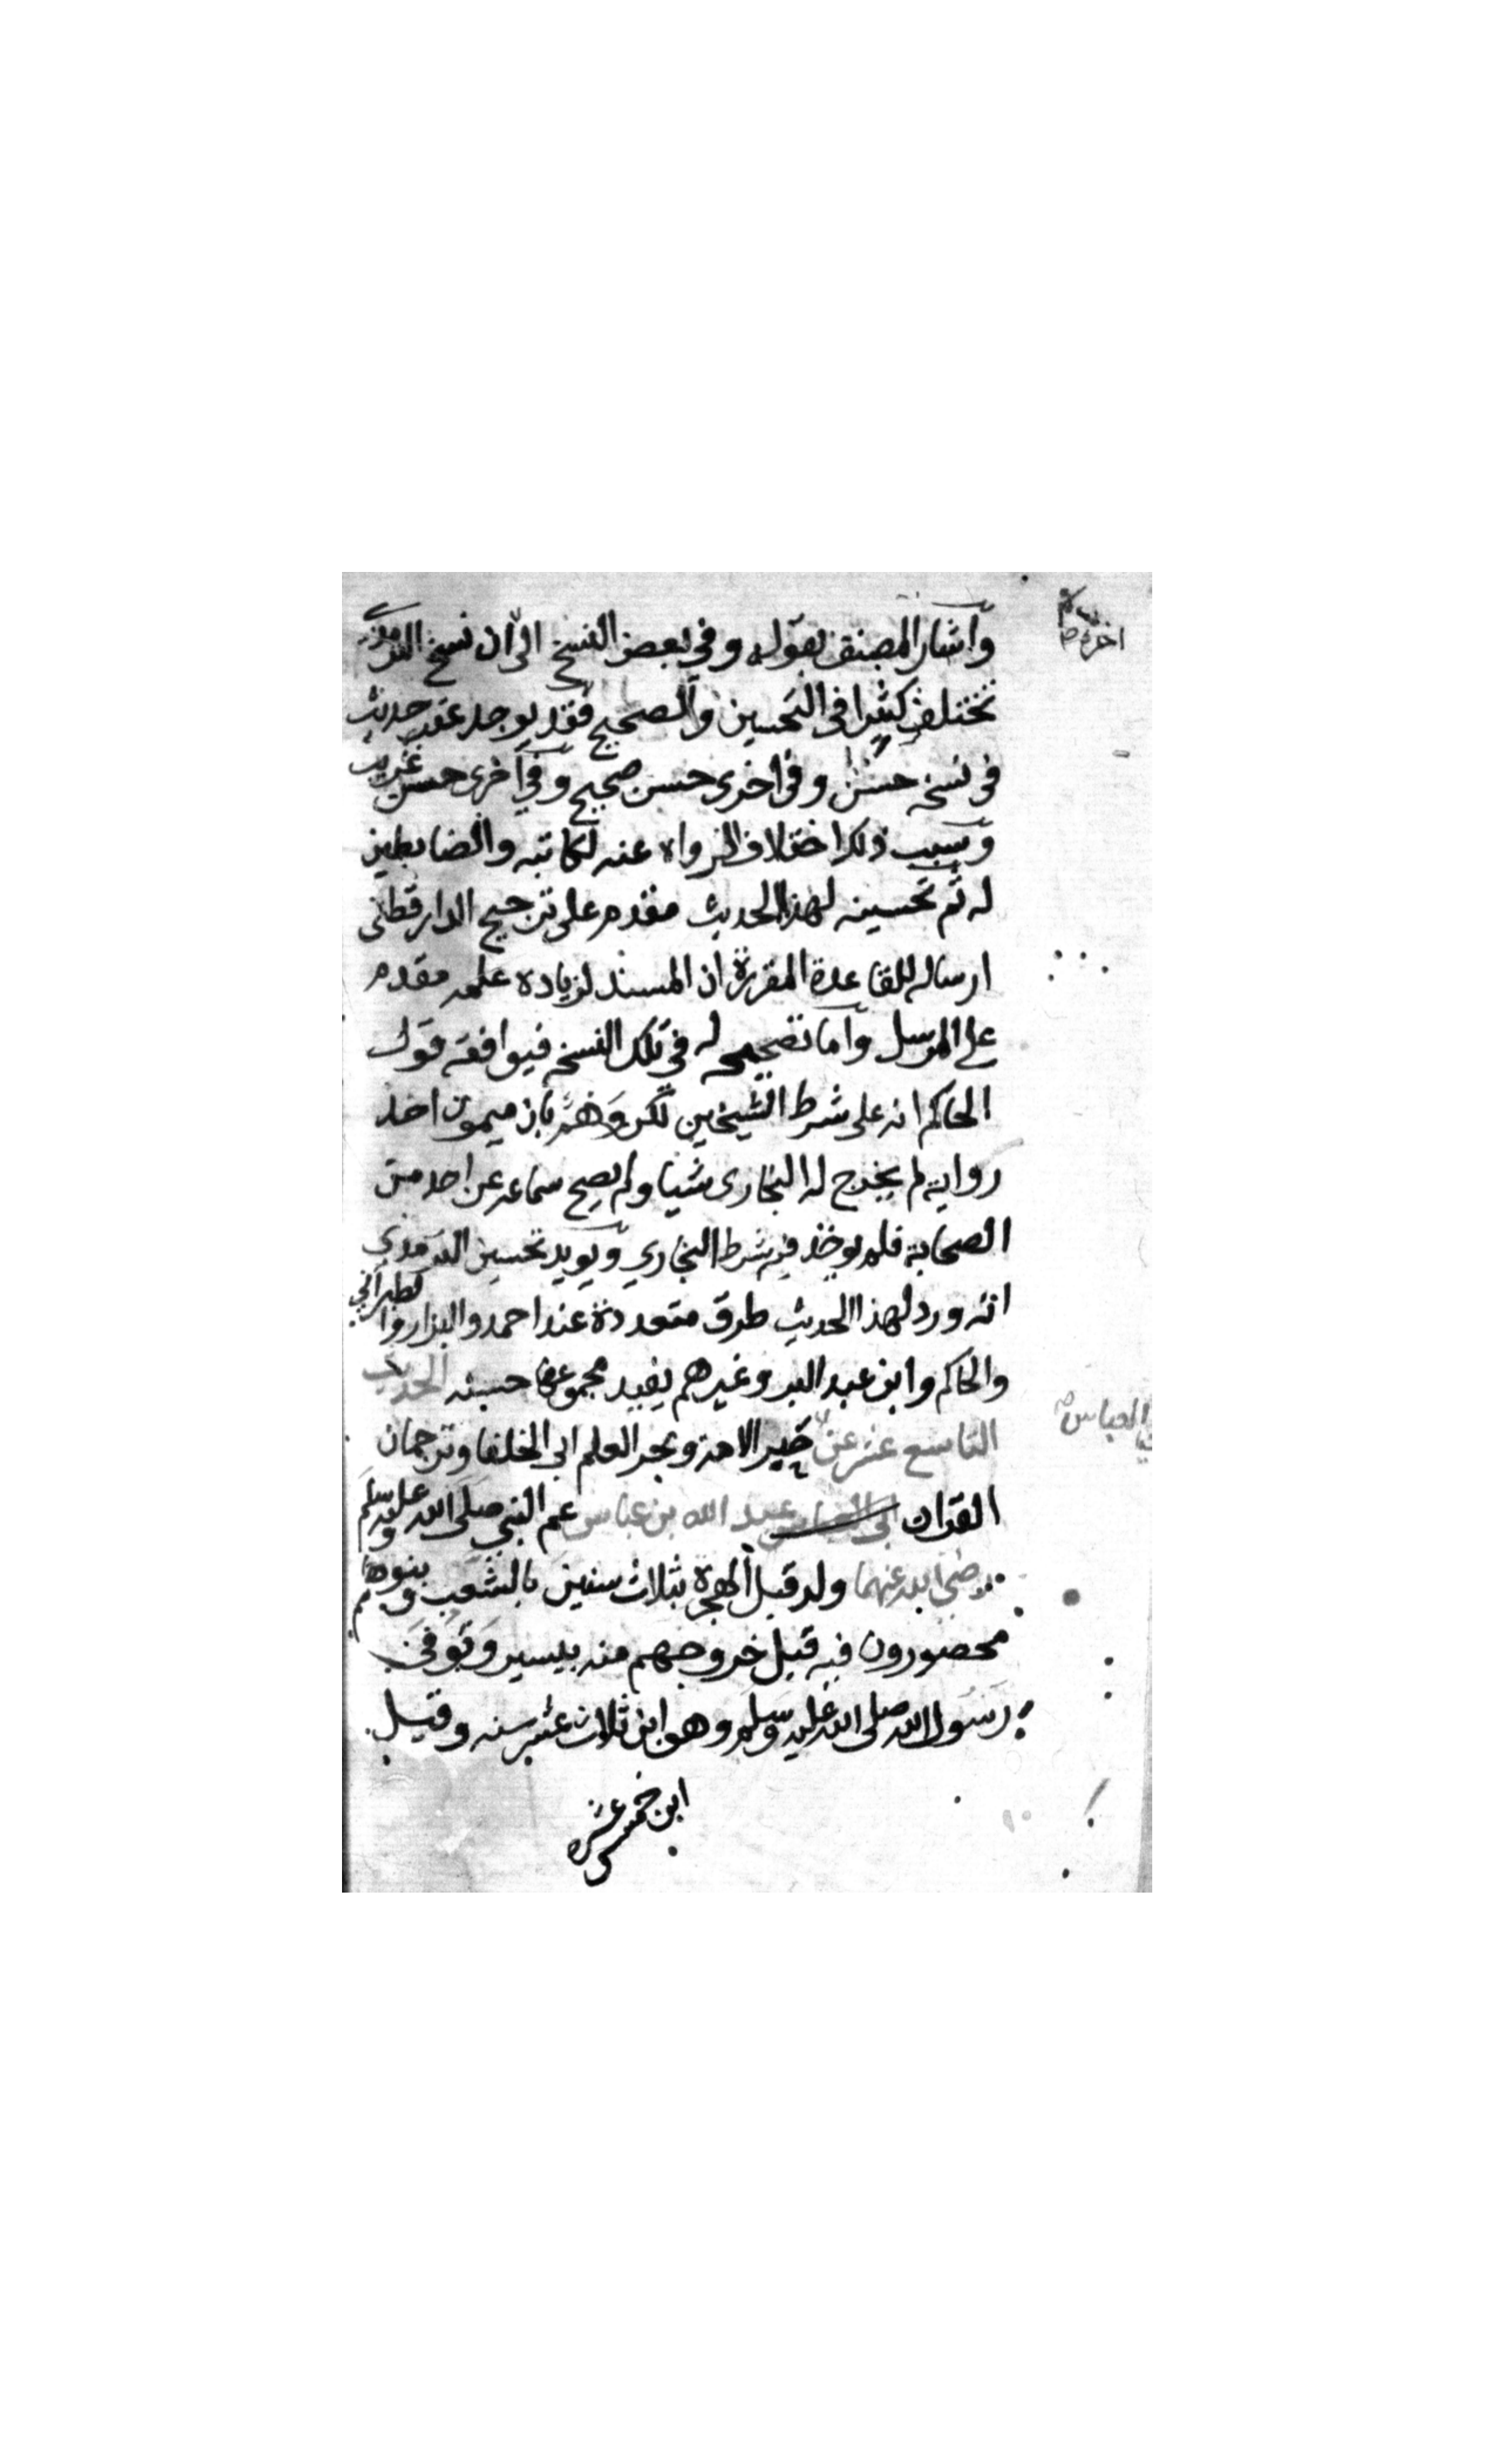 وأشار المصنف بقوله وفي بعض النسخ الى ان نسخ الترمذي
تختلف كثيرا في التحسين والصحيح فقد يوجد عقب حديث
في نسخه حسن وفي اخرى حسن صحيح وفي اخرى حسن غريب
وسبب ذلك اختلاف الرواه عنه لكاتبه والضابطين
له ثم تحسينه لهذا الحديث مقدم على ترجيح الدارقطني
ارساله للقاعدة المقررة ان المسند لزيادة علمه مقدم
على المرسل وأما تصحيحه له في تلك النسخه فيوافقه قول
الحاكم انه على شرط الشيخين لكن وَهَّم بان ميمون احد
رواته لم يخرج له البخاري شيا ولم يصح سماعه عن احد من
الصحابة فلم يوجد فيه شرط البخاري ويويد تحسين الترمذي
انه ورد لهذا الحديث طرق متعددة عند احمد والبزار والطبراني
والحاكم وابن عبد البر وغيرهم يفيد مجموعها حسنه الحديث
التاسع عشر عن حبر الامة وبحر العلم ابي الخلفا وترجمان
القرآن ابي العباس عبد الله بن عباس عم النبي صلى الله عليه وسلم
رضي الله عنهما ولد قبل الهجرة بثلاث سنين بالشعب وبنو هاشم
محصورون فيه قبل خروجهم منه بيسير وتوفي
رسول الله صلى الله عليه وسلم وهو ابن ثلاث عشر سنه وقيل
ابن خمس عشره
العباس